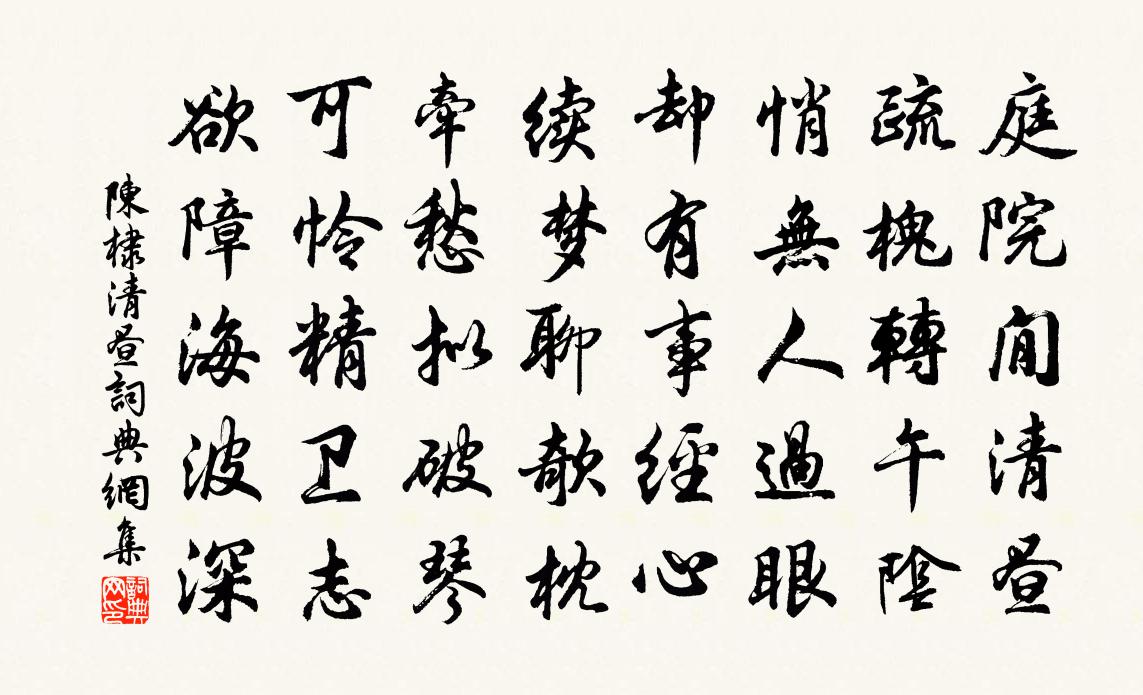 庭院閒清昼
疏槐轉午陰
悄無人過眼
却有事經心
续梦聊欹枕
牽愁拟破琴
可怜精卫志
欲障海波深
陳棣清昼詞典網集
詞典网印